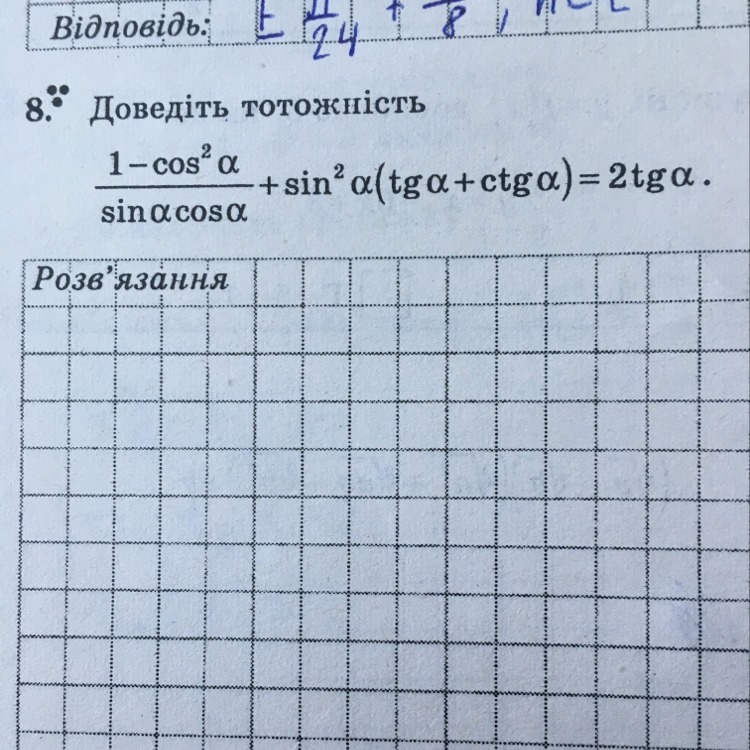 Відповідь: π/24 + /8, n∈
8. Доведіть тотожність
(1−cos² α)/(sin α cos α) + sin² α(tg α + ctg α) = 2tg α.
Розв’язання